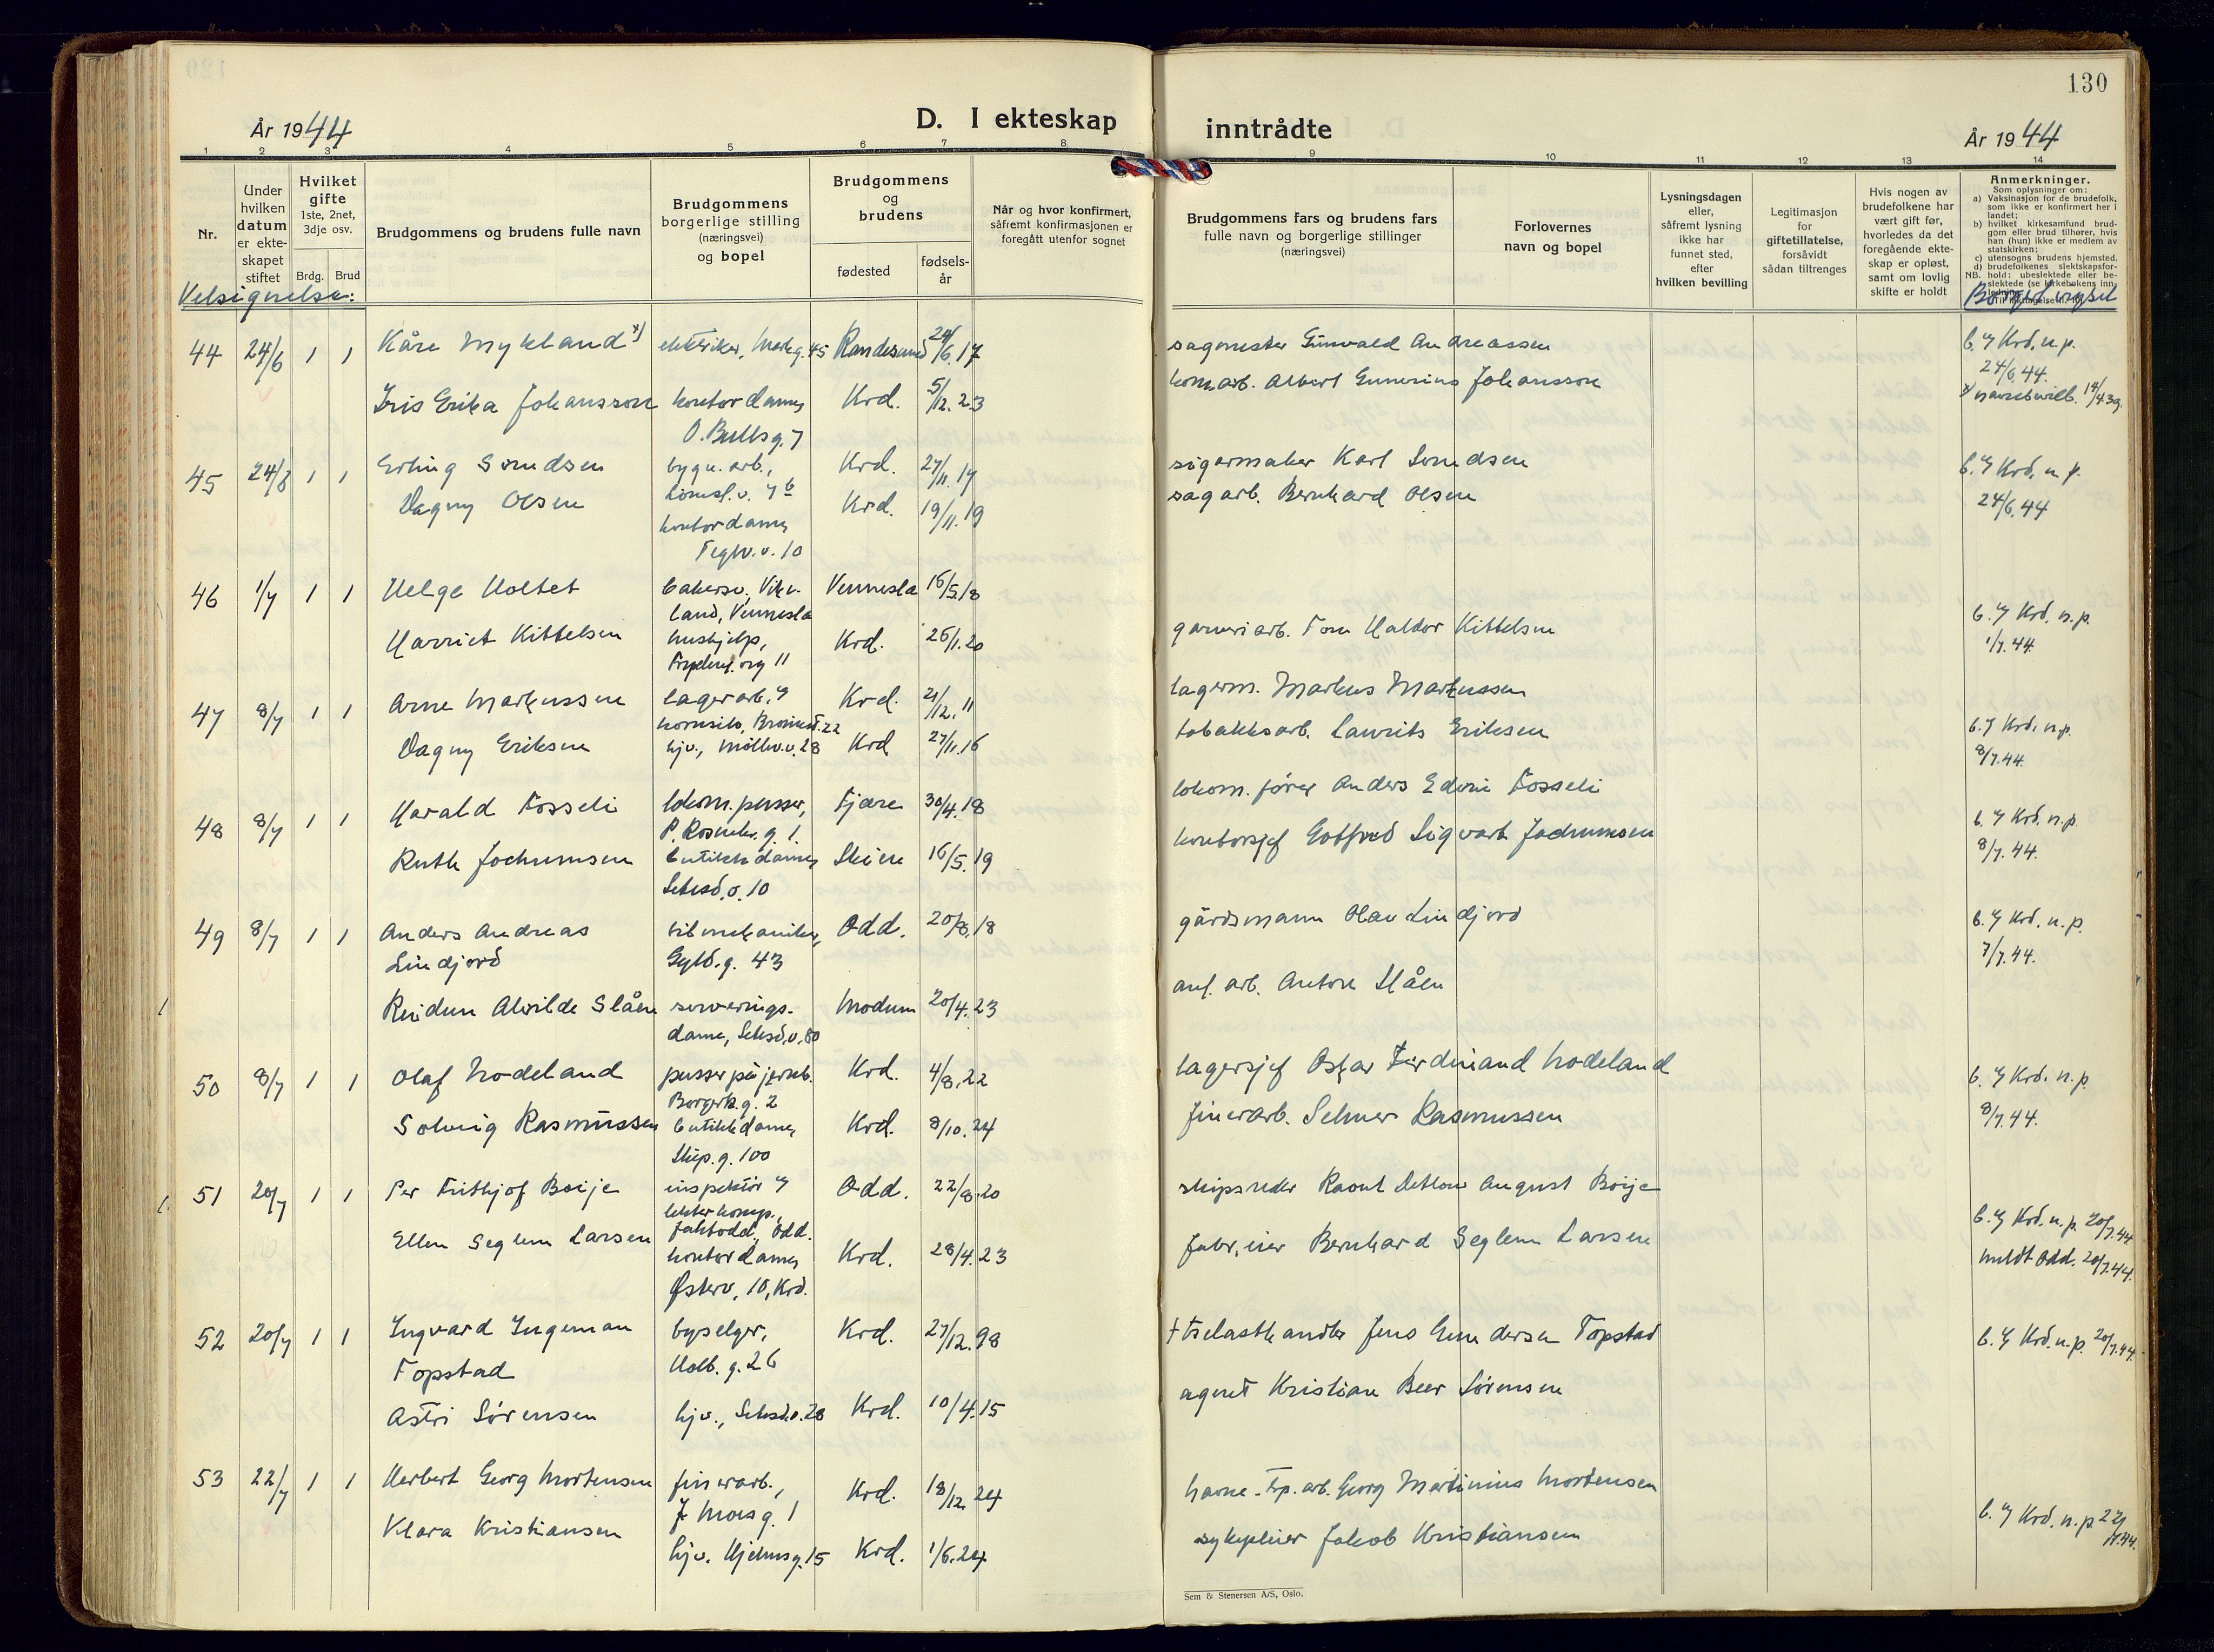 130
År 1944
D. I ekteskap inntrådte
År 1944
1 2 3 4 5 6 7 8 9 10 11 12 13 14
Nr.
Under hvilken datum er ekteskapet stiftet
Hvilket gifte 1ste, 2net, 3dje osv.
Brdg. Brud
Brudgommens og brudens fulle navn
Brudgommens borgerlige stilling (næringsvei) og bopel
Brudgommens og brudens
fødested
fødselsår
Når og hvor konfirmert, såfremt konfirmasjonen er foregått utenfor sognet
Brudgommens fars og brudens fars fulle navn og borgerlige stillinger (næringsvei)
Forlovernes navn og bopel
Lysningsdagen eller, såfremt lysning ikke har funnet sted, efter hvilken bevilling
Legitimasjon for giftetillatelse, forsåvidt sådan tiltrenges
Hvis nogen av brudefolkene har vært gift før, hvorledes da det foregående ekteskap er opløst, samt om lovlig skifte er holdt
Anmerkninger.
Som oplysninger om:
a) Vaksinasjon for de brudefolk, som ikke er konfirmert her i landet;
b) hvilket kirkesamfund brudgom eller brud tilhører, hvis han (hun) ikke er medlem av statskirken;
c) utensogns brudens hjemsted.
d) brudefolkenes slektskapsforhold: ubeslektede eller beslektede
Velsignelse:
Borgerl. vigsel
44 24/6 1 1 Kåre Mykland x) elektriker, Markg. 45 Randesund 24/6.17 sagmester Gunvald Andreassen b. v/ Krd. n.p. 24/6.44.
Iris Erika Johansson kontordame, O. Bullsg. 7 Krd. 5/12.23 komm.arb. Albert Gunerius Johansson x) navnebevill. 14/4.39.
45 24/6 1 1 Erling Svendsen bygn. arb., Krd. 27/11.17 sigarmaker Karl Svendsen b. v/ Krd. n.p. 24/6.44
Dagny Olsen kontordame, Teglv.v. 10 Krd. 19/11.19 sagarb. Bernhard Olsen
46 1/7 1 1 Helge Holtet bakersv., Vikeland, Vennesla Vennesla 16/5.18
Harriet Kittelsen hushjelp, Krd. 26/1.20 garveriarb. Tom Haldor Kittelsen b. v/ Krd. n.p. 1/7.44.
47 8/7 1 1 Arne Markussen lagerarb. v/ kornsilo, 22 Krd. 21/12.11 lagerm. Markus Markussen
Dagny Eriksen hjv., Møllev.v. 28 Krd 27/11.16 tobakksarb. Laurits Eriksen b. v/ Krd. n.p. 8/7.44.
48 8/7 1 1 Harald Fosseli lokom.pusser, P. Rosenkr. g. 1. Fjære 30/4.18 lokom. fører Anders Edvin Fosseli b. v/ Krd. n.p. 8/7.44.
Ruth Jochumsen butikkdame, Setesd.v. 10 Skien 16/5.19 kontorsjef Gotfred Sigvart Jochumsen
49 8/7 1 1 Anders Andreas Lindjord bilmekaniker, Gyld.g. 43 Odd. 20/8.18 gårdsmann Olav Lindjord b. v/ Krd. n.p. 7/7.44.
Reidun Alvilde Slåen serveringsdame, Setesd.v. 80 Modum 20/4.23 anl. arb. Anton Slåen
50 8/7 1 1 Olaf Nodeland pusser på jernb. g. 2 Krd. 4/8.22 lagersjef Oskar Ferdinand Nodeland b. v/ Krd. n.p. 8/7.44.
Solveig Rasmussen butikkdame, Skip.g. 100 Krd. 8/10.24 finerarb. Selmer Rasmussen
51 20/7 1 1 Per Frithjof Boije inspektør v/ Odd. Odd. 22/8.20 skipsreder Raoul Detlow August Boije
Ellen Seglem Larsen kontordame, Østerv. 10, Krd. Krd. 28/4.23 fabr.eier Bernhard Seglem Larsen b. v/ Krd. n.p. 20/7.44 meldt Odd. 20/7.44.
52 20/7 1 1 Ingvard Ingeman Topstad byselger, Holb. g. 26 Krd. 27/12.98 † trelasthandler Jens Gundersen Topstad b. v/ Krd. n.p. 20/7.44.
Astri Sørensen hjv., Setesd.v. 28 Krd. 10/4.15 agent Kristian Beer Sørensen
53 22/7 1 1 Herbert Georg Mortensen finerarb., J Moesg. 1 Krd. 18/12.24 havne-insp.arb. Georg Martinius Mortensen
Klara Kristiansen hjv. 15 Krd. 1/6.24 sykepleier Jakob Kristiansen b. v/ Krd. n.p. 22/7.44.
Sem & Stenersen A/S, Oslo.